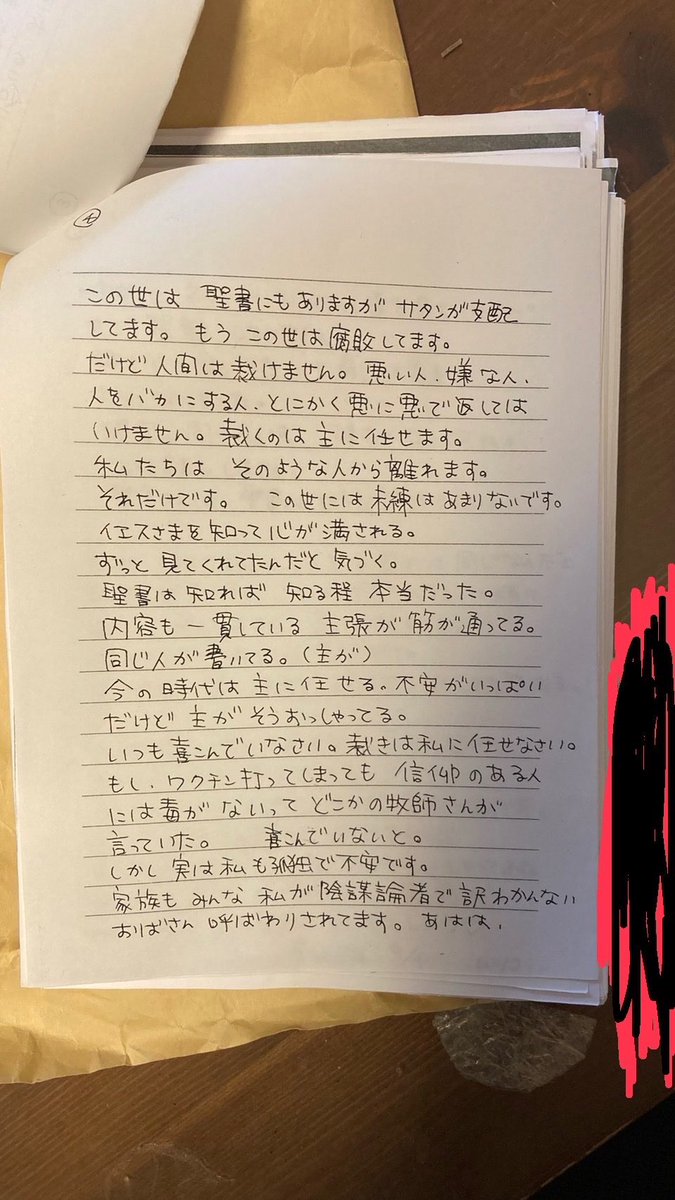 この世は 聖書にもありますが サタンが支配
してます。もう この世は腐敗してます。
だけど人間は裁けません。悪い人、嫌な人、
人をバカにする人、とにかく悪に悪で返しては
いけません。裁くのは主に任せます。
私たちは そのような人から離れます。
それだけです。 この世には未練はあまりないです。
イエスさまを知って心が満される。
ずっと見てくれてたんだと気づく。
聖書は知れば 知る程 本当だった。
内容も一貫している 主張が筋が通ってる。
同じ人が書いてる。(主が)
今の時代は主に任せる。不安がいっぱい
だけど主がそうおっしゃってる。
いつも喜こんでいなさい。裁きは私に任せなさい。
もし、ワクチン打ってしまっても 信仰のある人
には毒がないって どこかの牧師さんが
言っていた。 喜こんでいないと。
しかし実は私も孤独で不安です。
家族もみんな 私が陰謀論者で訳わかんない
おばさん呼ばわりされてます。あはは、